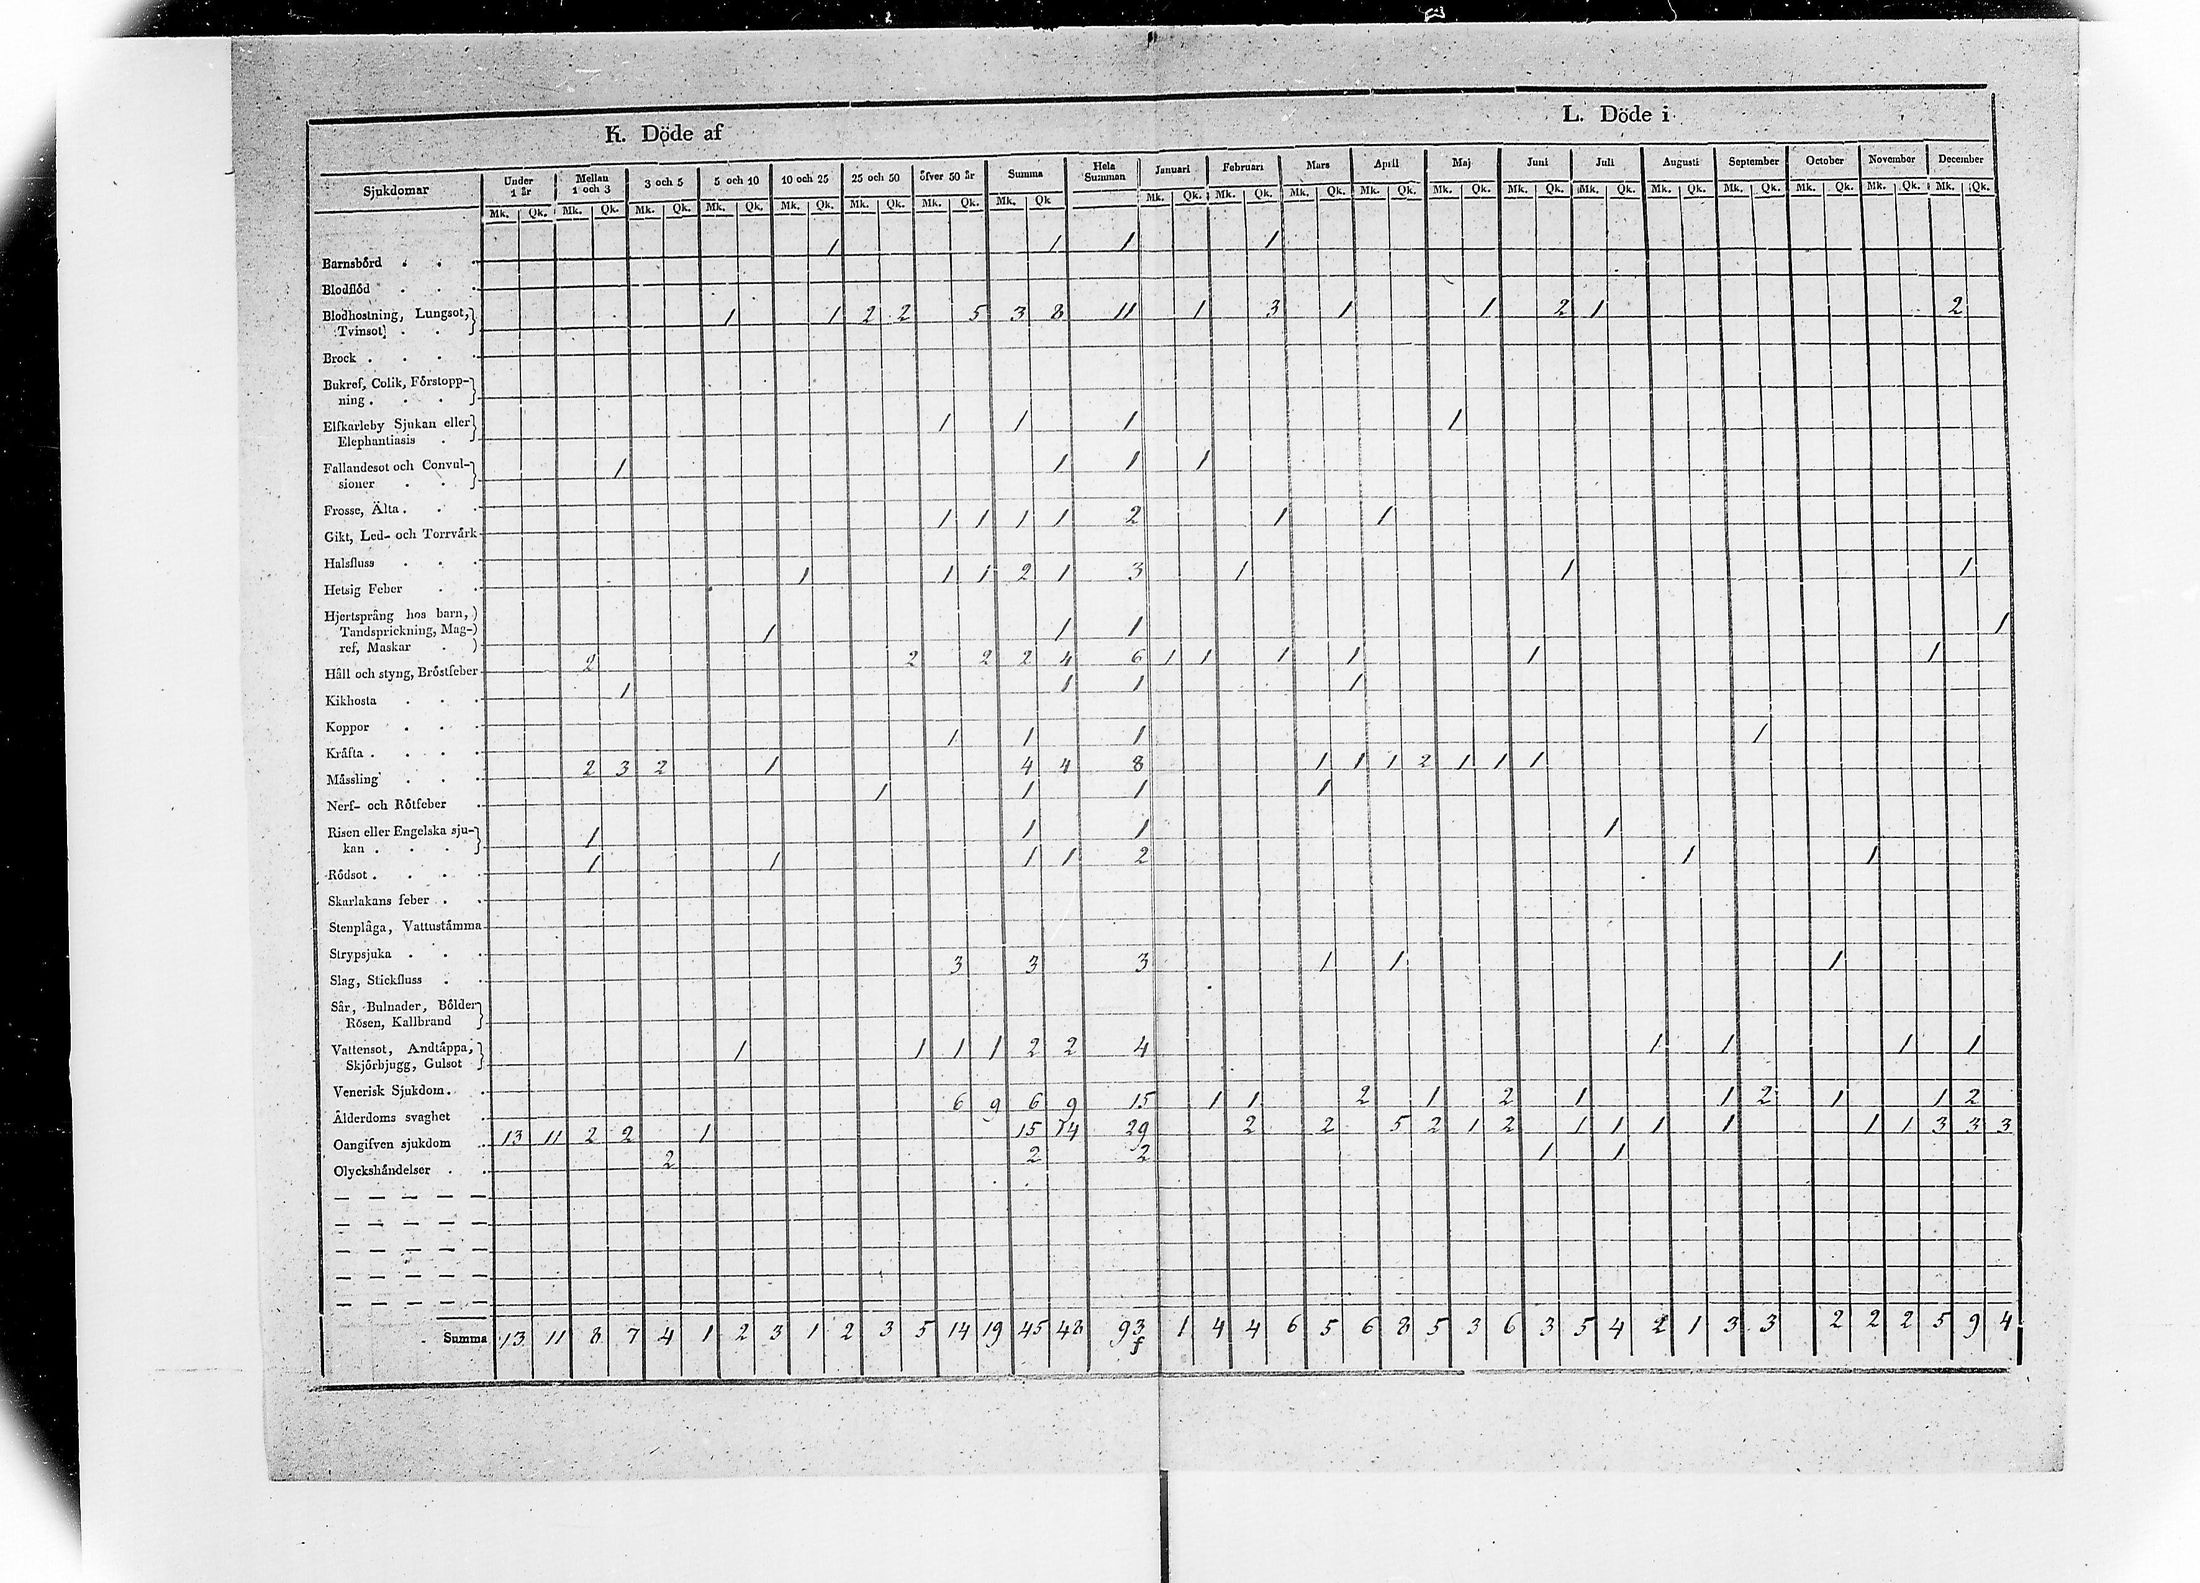 K. Döde af L. Döde i
Sjukdomar Under 1 år Mellan 1 och 3 3 och 5 5 och 10 10 och 25 25 och 50 öfver 50 år Summa Hela Summan Januari Februari Mars April Maj Juni Juli Augusti September October November December
Mk. Qk. Mk. Qk. Mk. Qk. Mk. Qk. Mk. Qk. Mk. Qk. Mk. Qk. Mk. Qk Mk. Qk. Mk. Qk. Mk. Qk. Mk. Qk. Mk. Qk. Mk. Qk. Mk. Qk. Mk. Qk. Mk. Qk. Mk. Qk. Mk. Qk. Mk. Qk.
Barnsbörd . . . 1 1 1 1
Blodflöd . . .
Blodhostning, Lungsot,
Tvinsot . . 1 1 2 2 5 3 8 11 1 3 1 1 2 1 2
Brock . . . .
Bukref, Colik, Förstopp-
ning . . .
Elfkarleby Sjukan eller
Elephantiasis . 1 1 1 1
Fallandesot och Convul-
sioner . . 1 1 1 1
Frosse, Älta . . .
Gikt, Led- och Torrvärk 1 1 1 1 2 1 1
Halsfluss . . .
Hetsig Feber . . 1 1 1 2 1 3 1 1 1
Hjertsprång hos barn,
Tandsprickning, Mag-
ref, Maskar . 1 1 1 1
Håll och styng, Bröstfeber 2 2 2 2 4 6 1 1 1 1 1 1
Kikhosta . . . 1 1 1 1
Koppor . . .
Kräfta . . . . 1 1 1 1
Mässling . . . 2 3 2 1 4 4 8 1 1 1 2 1 1 1
Nerf- och Rötfeber . 1 1 1 1
Risen eller Engelska sju-
kan . . . 1 1 1 1
Rödsot . . . . 1 1 1 1 2 1 1
Skarlakans feber . .
Stenplåga, Vattustämma
Strypsjuka . . .
Slag, Stickfluss . . 3 3 3 1 1 1
Sår, Bulnader, Bölder
Rösen, Kallbrand
Vattensot, Andtäppa,
Skjörbjugg, Gulsot 1 1 1 1 2 2 4 1 1 1 1
Venerisk Sjukdom . .
Ålderdoms svaghet . 6 9 6 9 15 1 1 2 1 2 1 1 2 1 1 2
Oangifven sjukdom . . 13 11 2 2 1 15 14 29 2 2 5 2 1 2 1 1 1 1 1 1 3 3 3
Olyckshändelser . . 2 2 2 1 1
Summa 13 11 8 7 4 1 2 3 1 2 3 5 14 19 45 48 93 1 4 4 6 5 6 8 5 3 6 3 5 4 2 1 3 3 2 2 2 5 9 4